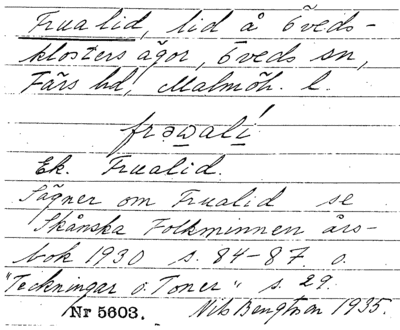 Frualid, lid å Öveds-
klosters ägor, Öveds sn,
Färs hd, Malmöh. l.
frəwalí
Ek. Frualid.
Sägner om Frualid se
Skånska Folkminnen års-
bok 1930 s. 84-87 o.
"Teckningar o. Toner" s. 29.
Nr 5603. Nils Bengtson 1935.